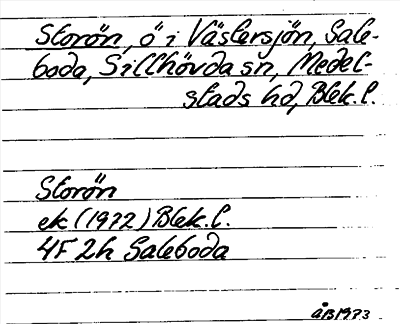 Storön, ö i Västersjön, Sale-
boda, Sillhövda sn, Medel-
stads hd, Blek. l.
Storön
ek (1972) Blek. l.
4F 2h Saleboda
ÅB1973